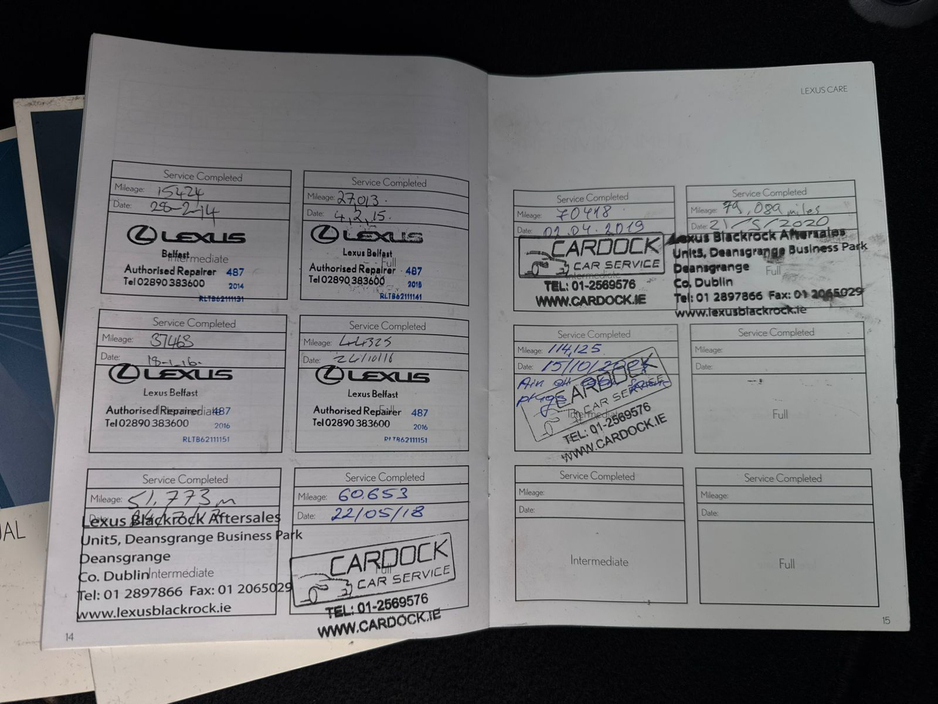 LEXUS CARE
Service Completed
Mileage: 15424
Date: 28-2-14
LEXUS
Belfast
Intermediate
Authorised Repairer 487
Tel 02890 383600 2014
RLTB62111151
Service Completed
Mileage: 27013.
Date: 4.2.15.
LEXUS
Lexus Belfast
Full
Authorised Repairer 487
Tel 02890 383600 2015
RLTB62111141
Service Completed
Mileage: 37468
Date: 18-1-16.
LEXUS
Lexus Belfast
Authorised Repairer 487
Intermediate
Tel 02890 383600 2016
RLTB62111151
Service Completed
Mileage: 44325
Date: 24/10/16
LEXUS
Lexus Belfast
Authorised Repairer 487
Full
Tel 02890 383600 2016
Service Completed
Mileage: 51,773 m
Date:
Lexus Blackrock Aftersales
Unit5, Deansgrange Business Park
Deansgrange
Co. Dublin
Intermediate
Tel: 01 2897866 Fax: 01 2065029
www.lexusblackrock.ie
Service Completed
Mileage: 60653
Date: 22/05/18
CARDOCK
CAR SERVICE
Full
TEL: 01-2569576
WWW.CARDOCK.IE
14
Service Completed
Mileage: 70418
Date: 02.04.2019
CARDOCK
CAR SERVICE
TEL: 01-2569576
WWW.CARDOCK.IE
Service Completed
Mileage: 79,089 miles
Date: 21/5/2020
Lexus Blackrock Aftersales
Unit5, Deansgrange Business Park
Deansgrange
Full
Co. Dublin
Tel: 01 2897866 Fax: 01 2065029
www.lexusblackrock.ie
Service Completed
Mileage: 114,125
Date: 15/10/
CARDOCK
CAR SERVICE
Intermediate
TEL: 01-2569576
WWW.CARDOCK.IE
Service Completed
Mileage:
Date:
Full
Service Completed
Mileage:
Date:
Intermediate
Service Completed
Mileage:
Date:
Full
15